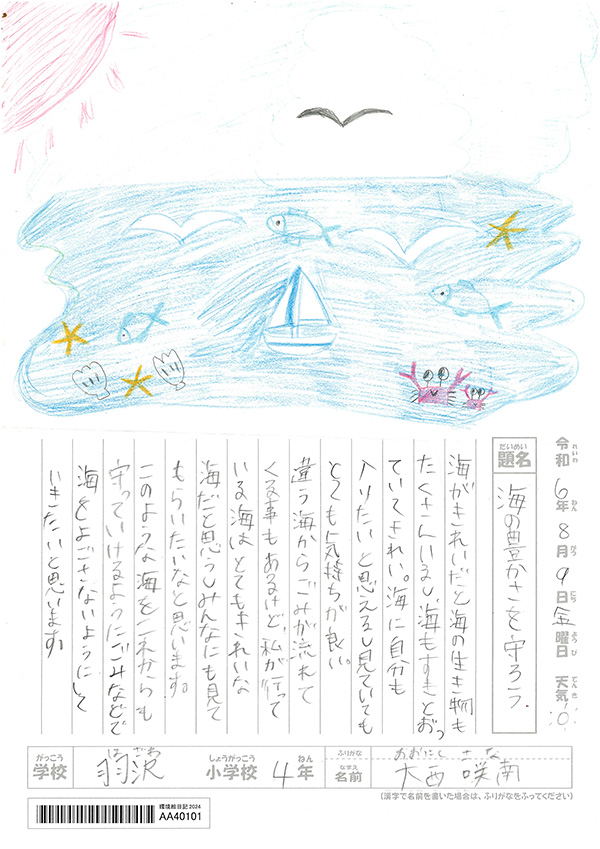 令和6年8月9日金曜日 天気
れいわ ねん がつ にち ようび てんき
だいめい
題名 海の豊かさを守ろう。
海がきれいだと海の生き物も
たくさんいるし、海もすきとおっ
ていてきれい。海に自分も
入りたいと思えるし見ていても
とても気持ちが良い。
違う海からごみが流れて
くる事もあるけど、私が行って
いる海はとてもきれいな
海だと思うしみんなにも見て
もらいたいなと思います。
このような海をこれからも
守っていけるようにごみなどで
海をよごさないようにして
いきたいと思います。
がっこう はざわ しょうがっこう ねん ふりがな おおにし さな
学校 羽沢 小学校 4年 なまえ 名前 大西 咲南
(漢字で名前を書いた場合は、ふりがなをふってください)
環境絵日記2024
AA40101